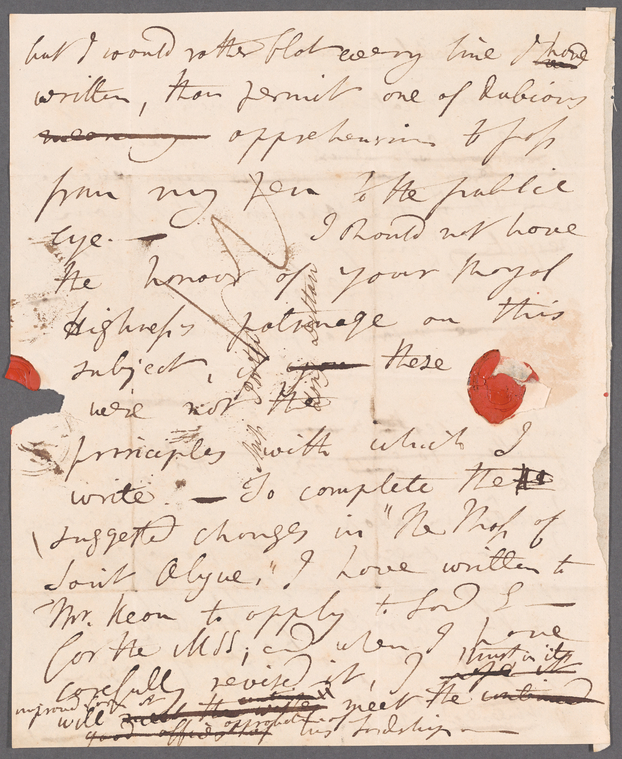 but I would rather blot every line I have
written, than permit one of dubious
meaning apprehension to pass
from my pen to the public
eye. — I should not have
the honour of your Royal
Highness's patronage on this
subject, if these
were not the
principles with which I
write. — To complete the
suggested changes in "The Thop of
Saint Olyue," I have written to
Mr. Keon to apply to Lord L —
for the MSS; and when I have
carefully revised it, I trust in its
improved form it
will meet the continued
good offices of his Lordship —
approbation of
Miss Porter